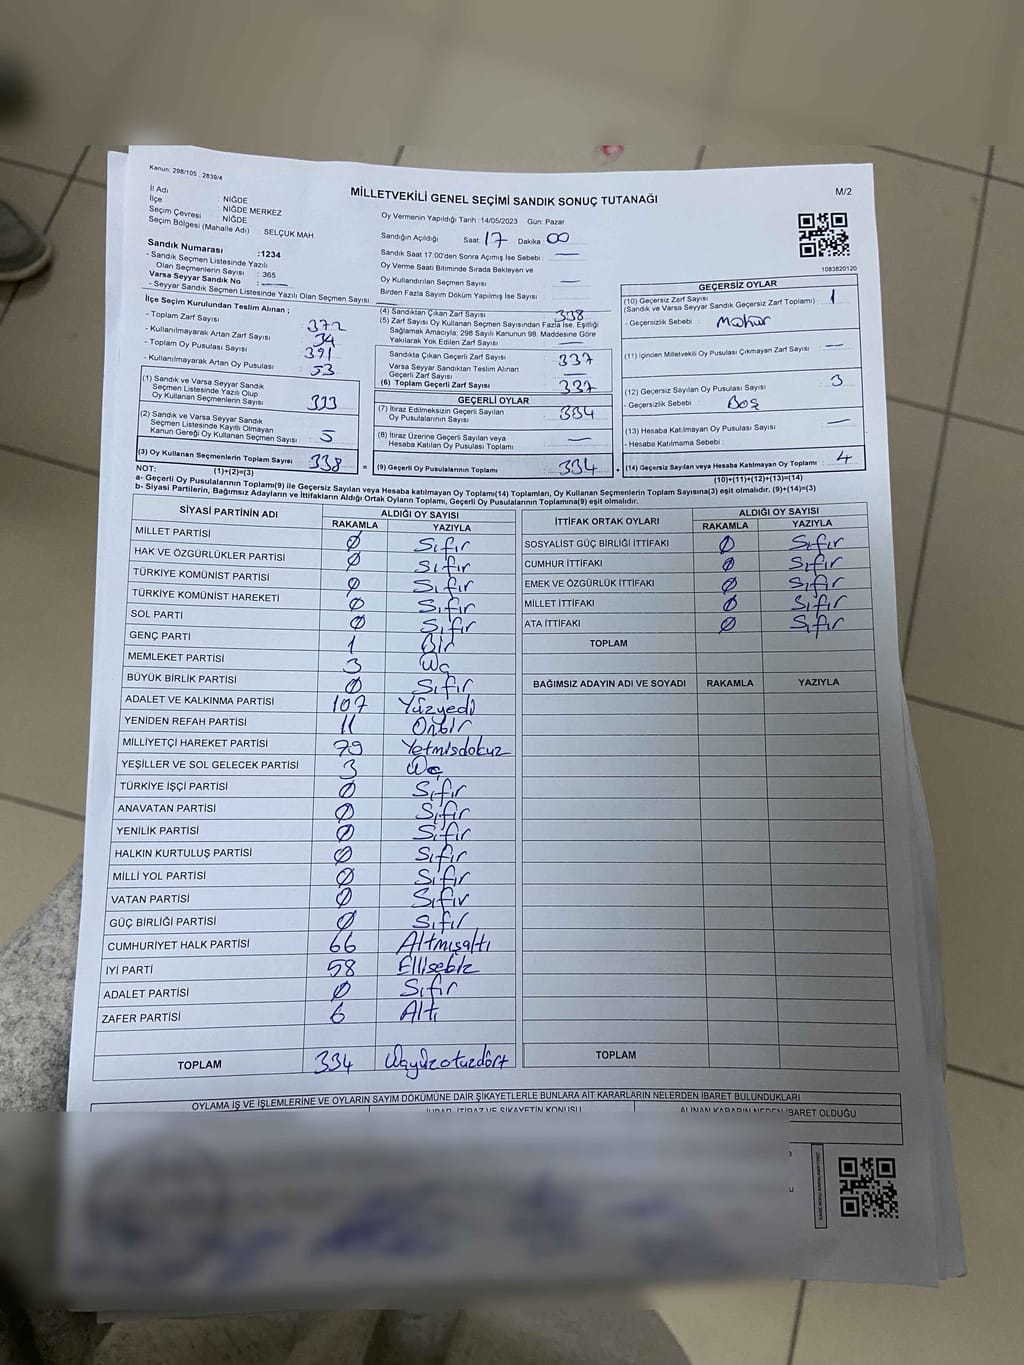 Kanun: 298/105 , 2839/4
MİLLETVEKİLİ GENEL SEÇİMİ SANDIK SONUÇ TUTANAĞI
M/2
İl Adı : NİĞDE
İlçe : NİĞDE MERKEZ
Seçim Çevresi : NİĞDE
Seçim Bölgesi (Mahalle Adı) : SELÇUK MAH
Sandık Numarası :1234
- Sandık Seçmen Listesinde Yazılı
Olan Seçmenlerin Sayısı : 365
Varsa Seyyar Sandık No : —
- Seyyar Sandık Seçmen Listesinde Yazılı Olan Seçmen Sayısı: —
İlçe Seçim Kurulundan Teslim Alınan ;
- Toplam Zarf Sayısı : 372
- Kullanılmayarak Artan Zarf Sayısı : 34
- Toplam Oy Pusulası Sayısı : 391
- Kullanılmayarak Artan Oy Pusulası : 53
(1) Sandık ve Varsa Seyyar Sandık
Seçmen Listesinde Yazılı Olup
Oy Kullanan Seçmenlerin Sayısı : 333
(2) Sandık ve Varsa Seyyar Sandık
Seçmen Listesinde Kayıtlı Olmayan
Kanun Gereği Oy Kullanan Seçmen Sayısı : 5
(3) Oy Kullanan Seçmenlerin Toplam Sayısı : 338
(1)+(2)=(3)
Oy Vermenin Yapıldığı Tarih :14/05/2023 Gün: Pazar
Sandığın Açıldığı Saat: 17 Dakika : 00
Sandık Saat 17.00'den Sonra Açılmış İse Sebebi : —
Oy Verme Saati Bitiminde Sırada Bekleyen ve
Oy Kullandırılan Seçmen Sayısı : —
Birden Fazla Sayım Döküm Yapılmış İse Sayısı :
(4) Sandıktan Çıkan Zarf Sayısı : 338
(5) Zarf Sayısı Oy Kullanan Seçmen Sayısından Fazla İse, Eşitliği
Sağlamak Amacıyla; 298 Sayılı Kanunun 98. Maddesine Göre
Yakılarak Yok Edilen Zarf Sayısı : —
Sandıkta Çıkan Geçerli Zarf Sayısı : 337
Varsa Seyyar Sandıktan Teslim Alınan
Geçerli Zarf Sayısı : —
(6) Toplam Geçerli Zarf Sayısı : 337
GEÇERLİ OYLAR
(7) İtiraz Edilmeksizin Geçerli Sayılan
Oy Pusulalarının Sayısı : 334
(8) İtiraz Üzerine Geçerli Sayılan veya
Hesaba Katılan Oy Pusulası Toplamı : —
= (9) Geçerli Oy Pusulalarının Toplamı : 334 +
1083820120
GEÇERSİZ OYLAR
(10) Geçersiz Zarf Sayısı : 1
(Sandık ve Varsa Seyyar Sandık Geçersiz Zarf Toplamı)
- Geçersizlik Sebebi :
(11) İçinden Milletvekili Oy Pusulası Çıkmayan Zarf Sayısı : —
(12) Geçersiz Sayılan Oy Pusulası Sayısı : 3
- Geçersizlik Sebebi : Boş
(13) Hesaba Katılmayan Oy Pusulası Sayısı : —
- Hesaba Katılmama Sebebi :
(14) Geçersiz Sayılan veya Hesaba Katılmayan Oy Toplamı : 4
(10)+(11)+(12)+(13)=(14)
NOT:
a- Geçerli Oy Pusulalarının Toplamı(9) ile Geçersiz Sayılan veya Hesaba katılmayan Oy Toplamı(14) Toplamları, Oy Kullanan Seçmenlerin Toplam Sayısına(3) eşit olmalıdır. (9)+(14)=(3)
b- Siyasi Partilerin, Bağımsız Adayların ve İttifakların Aldığı Ortak Oyların Toplamı, Geçerli Oy Pusulalarının Toplamına(9) eşit olmalıdır.
SİYASİ PARTİNİN ADI ALDIĞI OY SAYISI
RAKAMLA YAZIYLA
MİLLET PARTİSİ 0 Sıfır
HAK VE ÖZGÜRLÜKLER PARTİSİ 0 Sıfır
TÜRKİYE KOMÜNİST PARTİSİ 0 Sıfır
TÜRKİYE KOMÜNİST HAREKETİ 0 Sıfır
SOL PARTİ 0 Sıfır
GENÇ PARTİ 1 Bir
MEMLEKET PARTİSİ 3 Üç
BÜYÜK BİRLİK PARTİSİ 0 Sıfır
ADALET VE KALKINMA PARTİSİ 107 Yüzyedi
YENİDEN REFAH PARTİSİ 11 Onbir
MİLLİYETÇİ HAREKET PARTİSİ 79 Yetmisdokuz
YEŞİLLER VE SOL GELECEK PARTİSİ 3 Üç
TÜRKİYE İŞÇİ PARTİSİ 0 Sıfır
ANAVATAN PARTİSİ 0 Sıfır
YENİLİK PARTİSİ 0 Sıfır
HALKIN KURTULUŞ PARTİSİ 0 Sıfır
MİLLİ YOL PARTİSİ 0 Sıfır
VATAN PARTİSİ 0 Sıfır
GÜÇ BİRLİĞİ PARTİSİ 0 Sıfır
CUMHURİYET HALK PARTİSİ 66 Altmışaltı
İYİ PARTİ 58 Ellisekiz
ADALET PARTİSİ 0 Sıfır
ZAFER PARTİSİ 6 Altı
TOPLAM 334 Üçyüzotuzdört
İTTİFAK ORTAK OYLARI ALDIĞI OY SAYISI
RAKAMLA YAZIYLA
SOSYALİST GÜÇ BİRLİĞİ İTTİFAKI 0 Sıfır
CUMHUR İTTİFAKI 0 Sıfır
EMEK VE ÖZGÜRLÜK İTTİFAKI 0 Sıfır
MİLLET İTTİFAKI 0 Sıfır
ATA İTTİFAKI 0 Sıfır
TOPLAM
BAĞIMSIZ ADAYIN ADI VE SOYADI RAKAMLA YAZIYLA
TOPLAM
OYLAMA İŞ VE İŞLEMLERİNE VE OYLARIN SAYIM DÖKÜMÜNE DAİR ŞİKAYETLERLE BUNLARA AİT KARARLARIN NELERDEN İBARET BULUNDUKLARI
İHBAR, İTİRAZ VE ŞİKAYETİN KONUSU ALINAN KARARIN NEDEN İBARET OLDUĞU